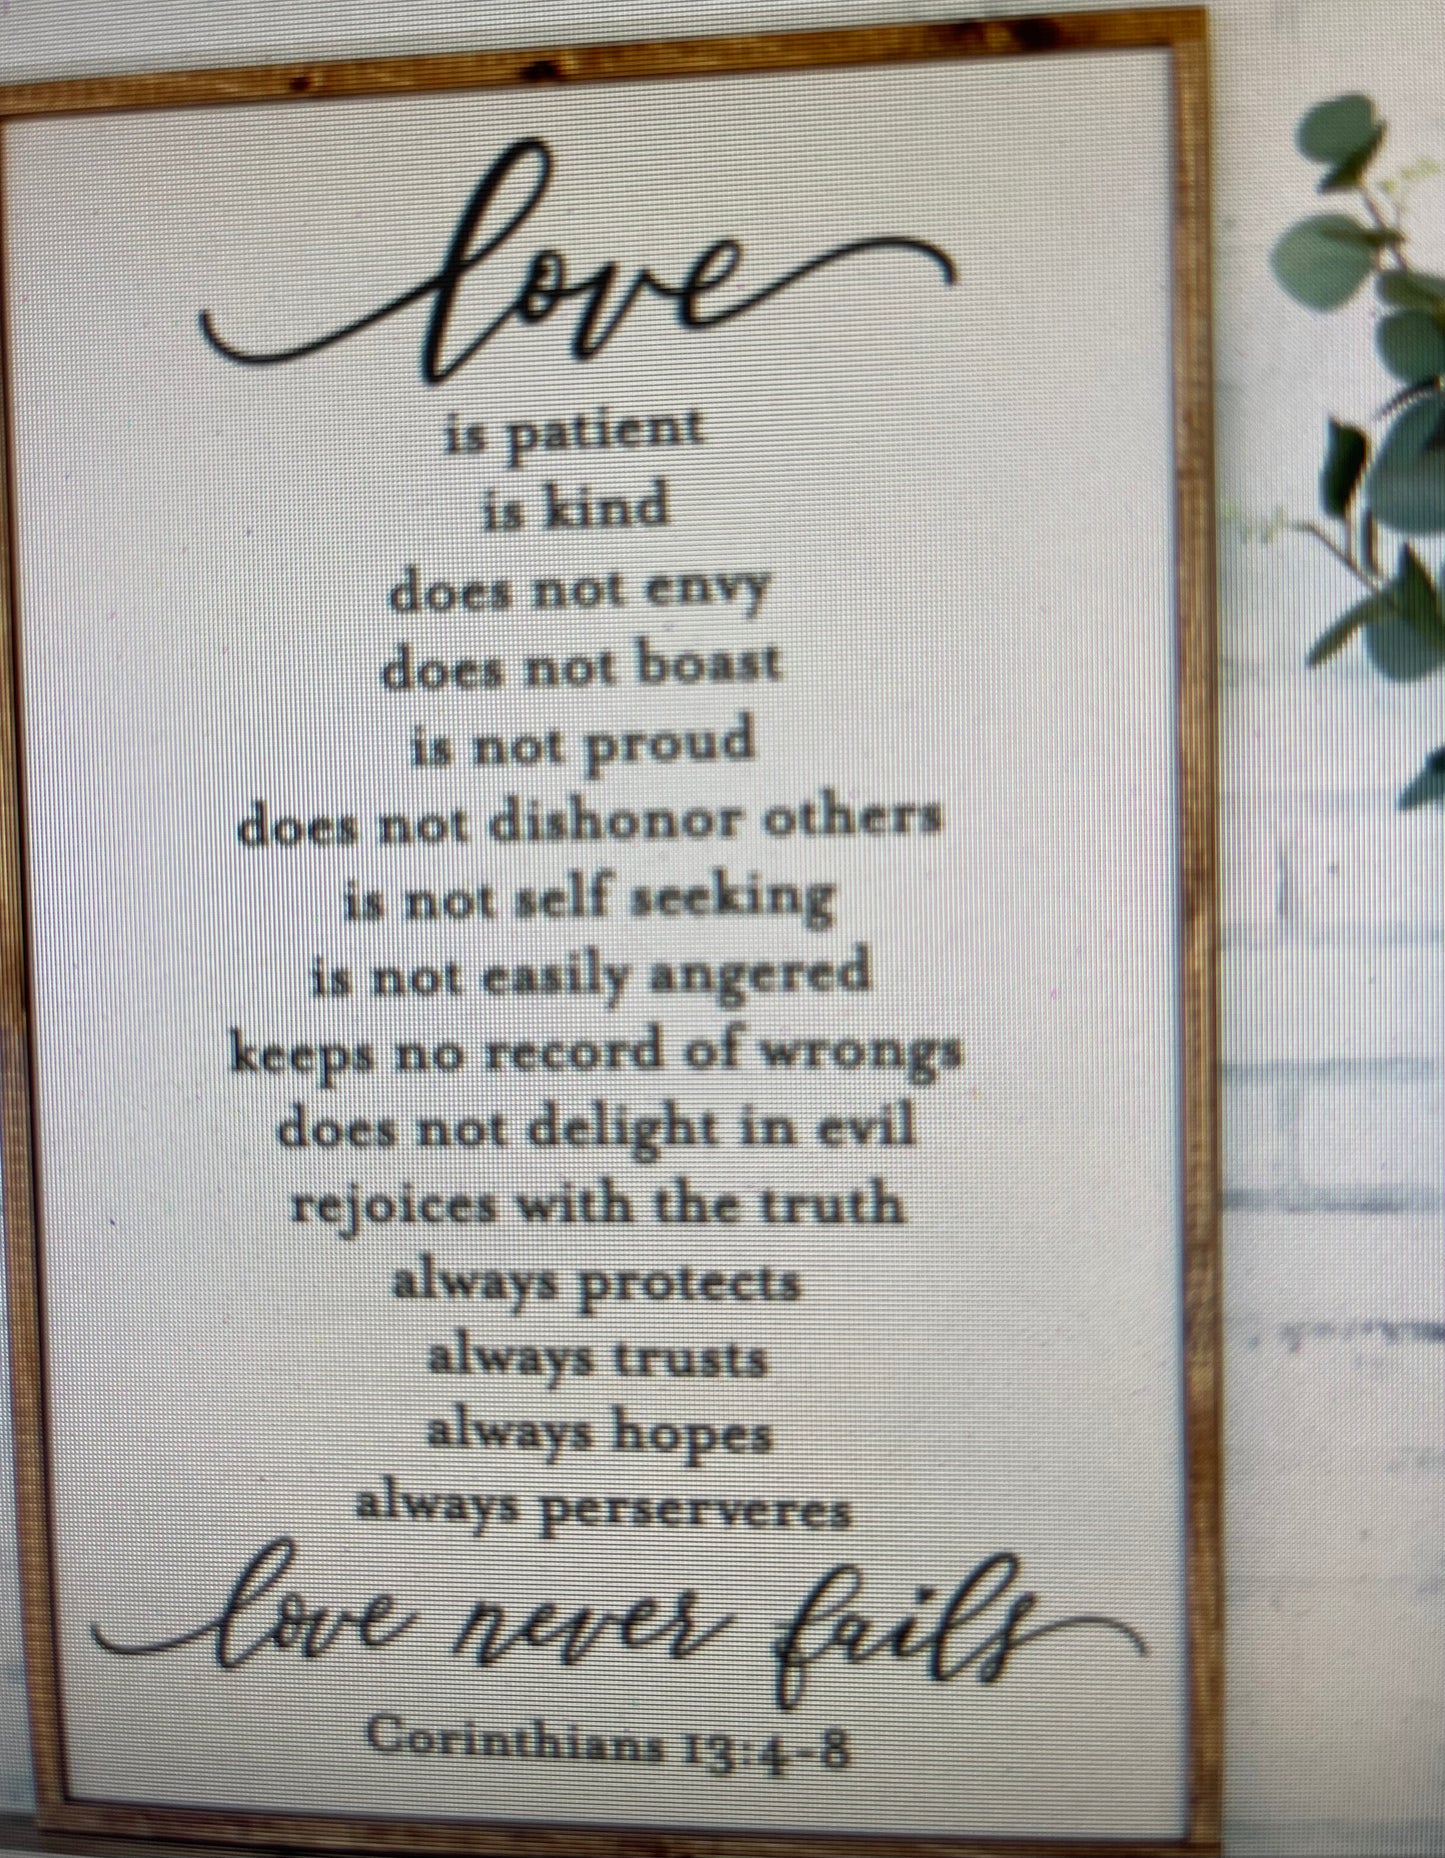 love
is patient
is kind
does not envy
does not boast
is not proud
does not dishonor others
is not self seeking
is not easily angered
keeps no record of wrongs
does not delight in evil
rejoices with the truth
always protects
always trusts
always hopes
always perserveres
love never fails
Corinthians 13:4-8